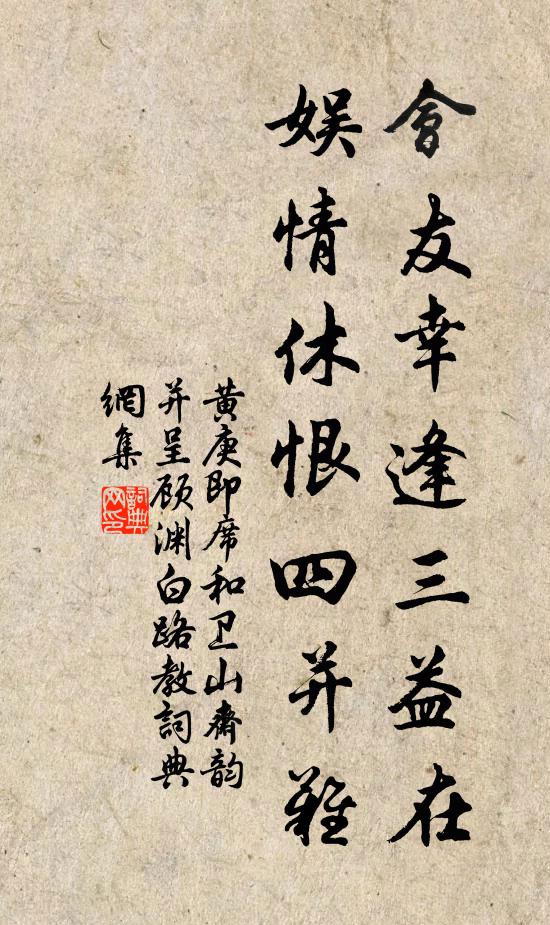 會友幸逢三益在
娱情休恨四并難
黄庚即席和卫山齋韵
并呈顾渊白路教詞典
網集
詞典
网印